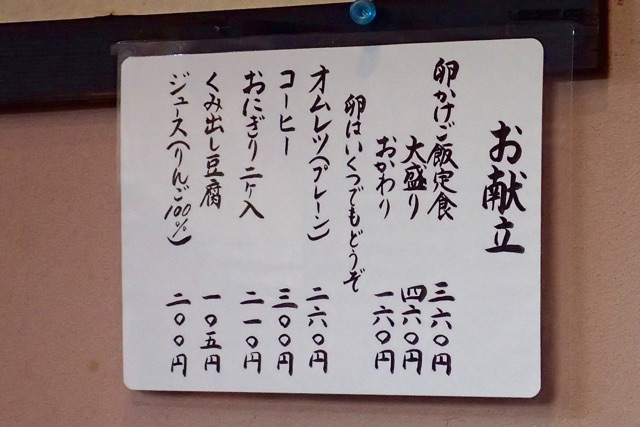 お献立
卵かけご飯定食 三六〇円
大盛り 四六〇円
おかわり 一六〇円
卵はいくつでもどうぞ
オムレツ(プレーン) 二六〇円
コーヒー 三〇〇円
おにぎり二ヶ入 二一〇円
くみ出し豆腐 一〇五円
ジュース(りんご100%) 二〇〇円